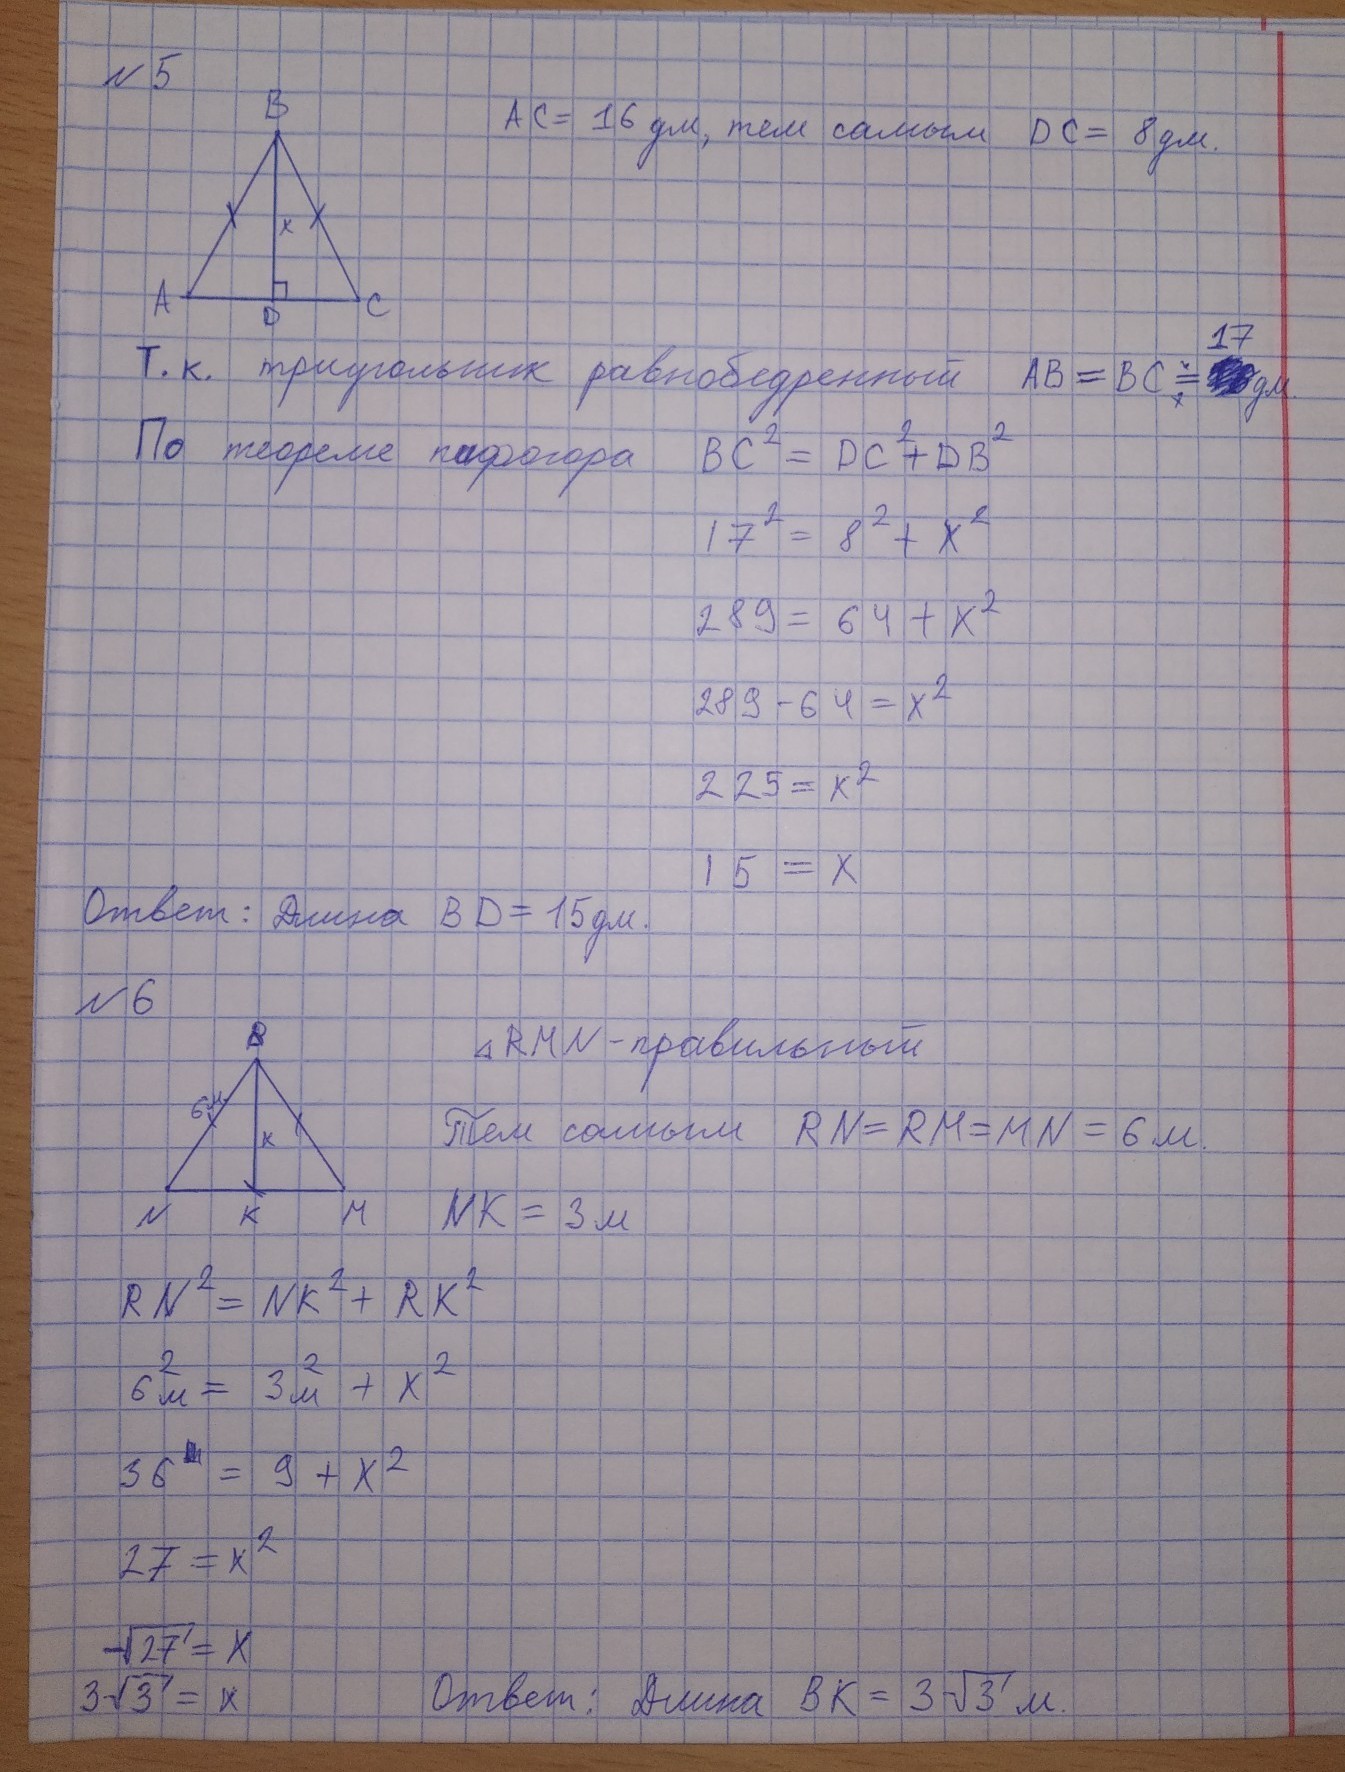 №5
B
AC = 16 дм, тем самым DC = 8 дм.
x
A D C
17
Т.к. треугольник равнобедренный AB = BC = дм.
По теореме пифагора BC² = DC² + DB²
17² = 8² + x²
289 = 64 + x²
289 - 64 = x²
225 = x²
15 = x
Ответ: Длина BD = 15 дм.
№6
△RMN - правильный
6м
Тем самым RN = RM = MN = 6 м.
x
N K M
NK = 3 м
RN² = NK² + RK²
6м² = 3м² + x²
36 = 9 + x²
27 = x²
√27 = x
3√3 = x
Ответ: Длина BK = 3√3 м.